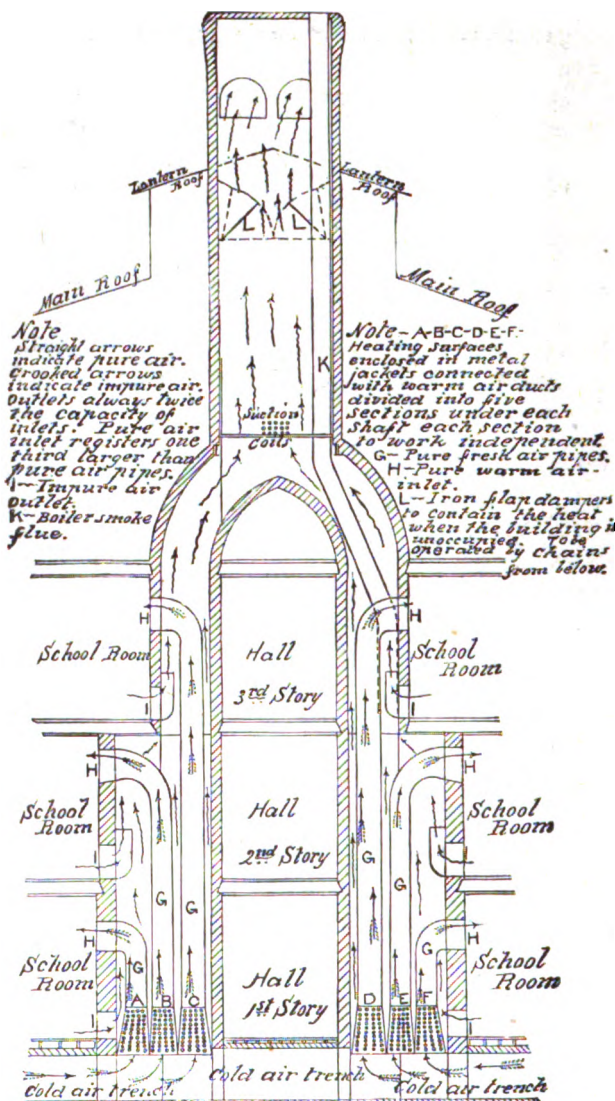 Lantern Roof
Lantern Roof
Main Roof
Main Roof
L L
Note
Straight arrows
indicate pure air.
Crooked arrows
indicate impure air.
Outlets always twice
the capacity of
inlets. Pure air
inlet registers one
third larger than
pure air pipes.
I–Impure air
outlet.
K–Boiler smoke
flue.
Note–A-B-C-D-E-F.-
Heating surfaces
enclosed in metal
jackets connected
with warm air ducts
divided into five
sections under each
shaft each section
to work independent
G–Pure fresh air pipes.
H–Pure warm air-
inlet.
L–Iron flap dampers
to contain the heat
when the building is
unoccupied. To be
operated by chains
from below.
K
Suction
Coils
H
H
School Room
Hall
3rd Story
School Room
I
I
H
H
School
Room
Hall
2nd Story
School
Room
I
I
G G G G
H
H
School
Room
G
Hall
1st Story
G
School
Room
A B C
D E F
I
I
Cold air trench
Cold air trench
Cold air trench